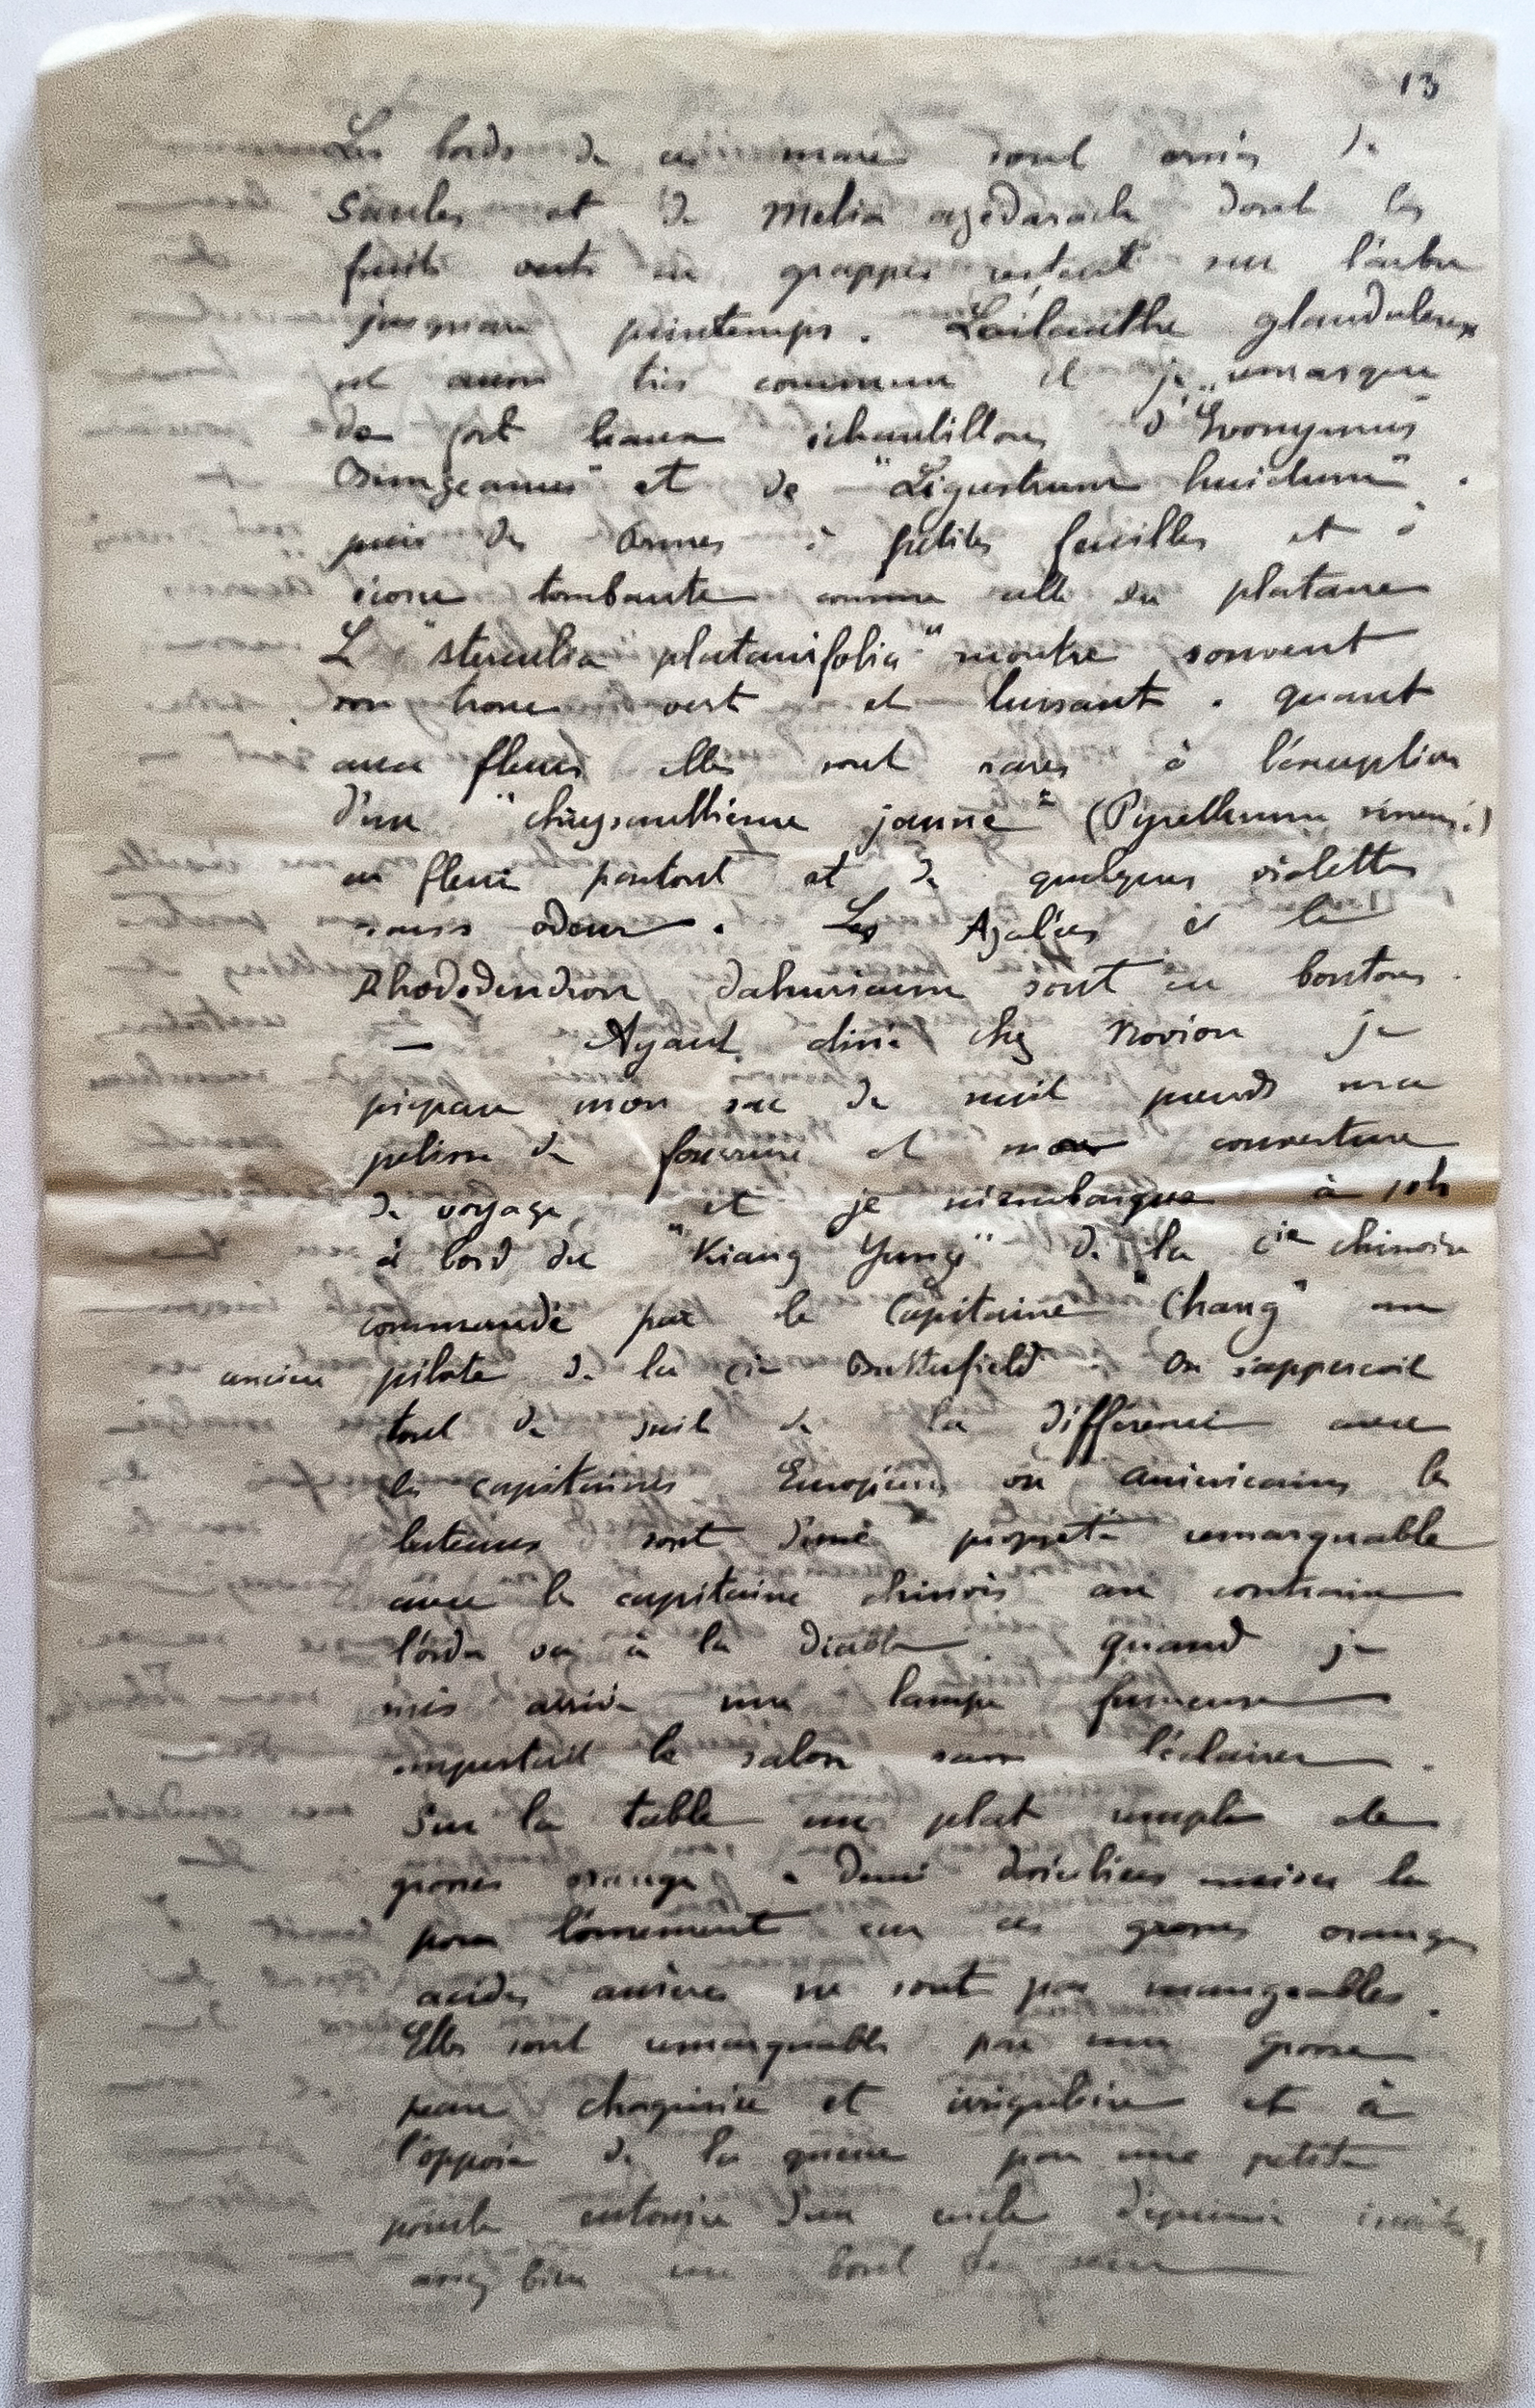 13
Les bords de ces mares sont ornés de
Saules et de Melia azedarach dont les
fruits verts en grappes restent sur l'arbre
jusqu'au printemps. L'ailanthe glanduleux
est aussi très commun et je remarque
de fort beaux échantillons d'"Evonymus
Bungeanus" et de "Ligustrum lucidum".
puis des Ormes à petites feuilles et à
écorce tombante comme celle du platane
Le "sterculia platanifolia" montre souvent
son tronc vert et luisant. quant
aux fleurs elles sont rares à l'exception
d'un "chrysanthème jaune" (Pyrethrum sinens.)
en fleur partout et de quelques violettes
sans odeur. Les Azalées et le
Rhododendron dahuricum sont en boutons.
— Ayant diné chez Novion je
prépare mon sac de nuit prends ma
pelisse de fourrure et ma couverture
de voyage, et je m'embarque à 10h
à bord du "Kiang Yung" de la Cie chinoise
commandé par le Capitaine "Chang" un
ancien pilote de la Cie Butterfield. On s'apperçoit
tout de suite de la différence avec
les capitaines Européens ou américains les
bateaux sont d'une propreté remarquable
avec le capitaine chinois au contraire
l'ordre va à la diable. quand je
suis arrivé une lampe fumeuse
empestait le salon sans l'éclairer.
Sur la table un plat rempli de
grosses oranges mises là
pour l'ornement car ces grosses oranges
acides amères ne sont pas mangeables.
Elles sont remarquables par une grosse
peau chagrinée et irrégulière et à
l'opposé de la queue par une petite
pointe entourée d'un cercle déprimé
assez bien un bout de sein